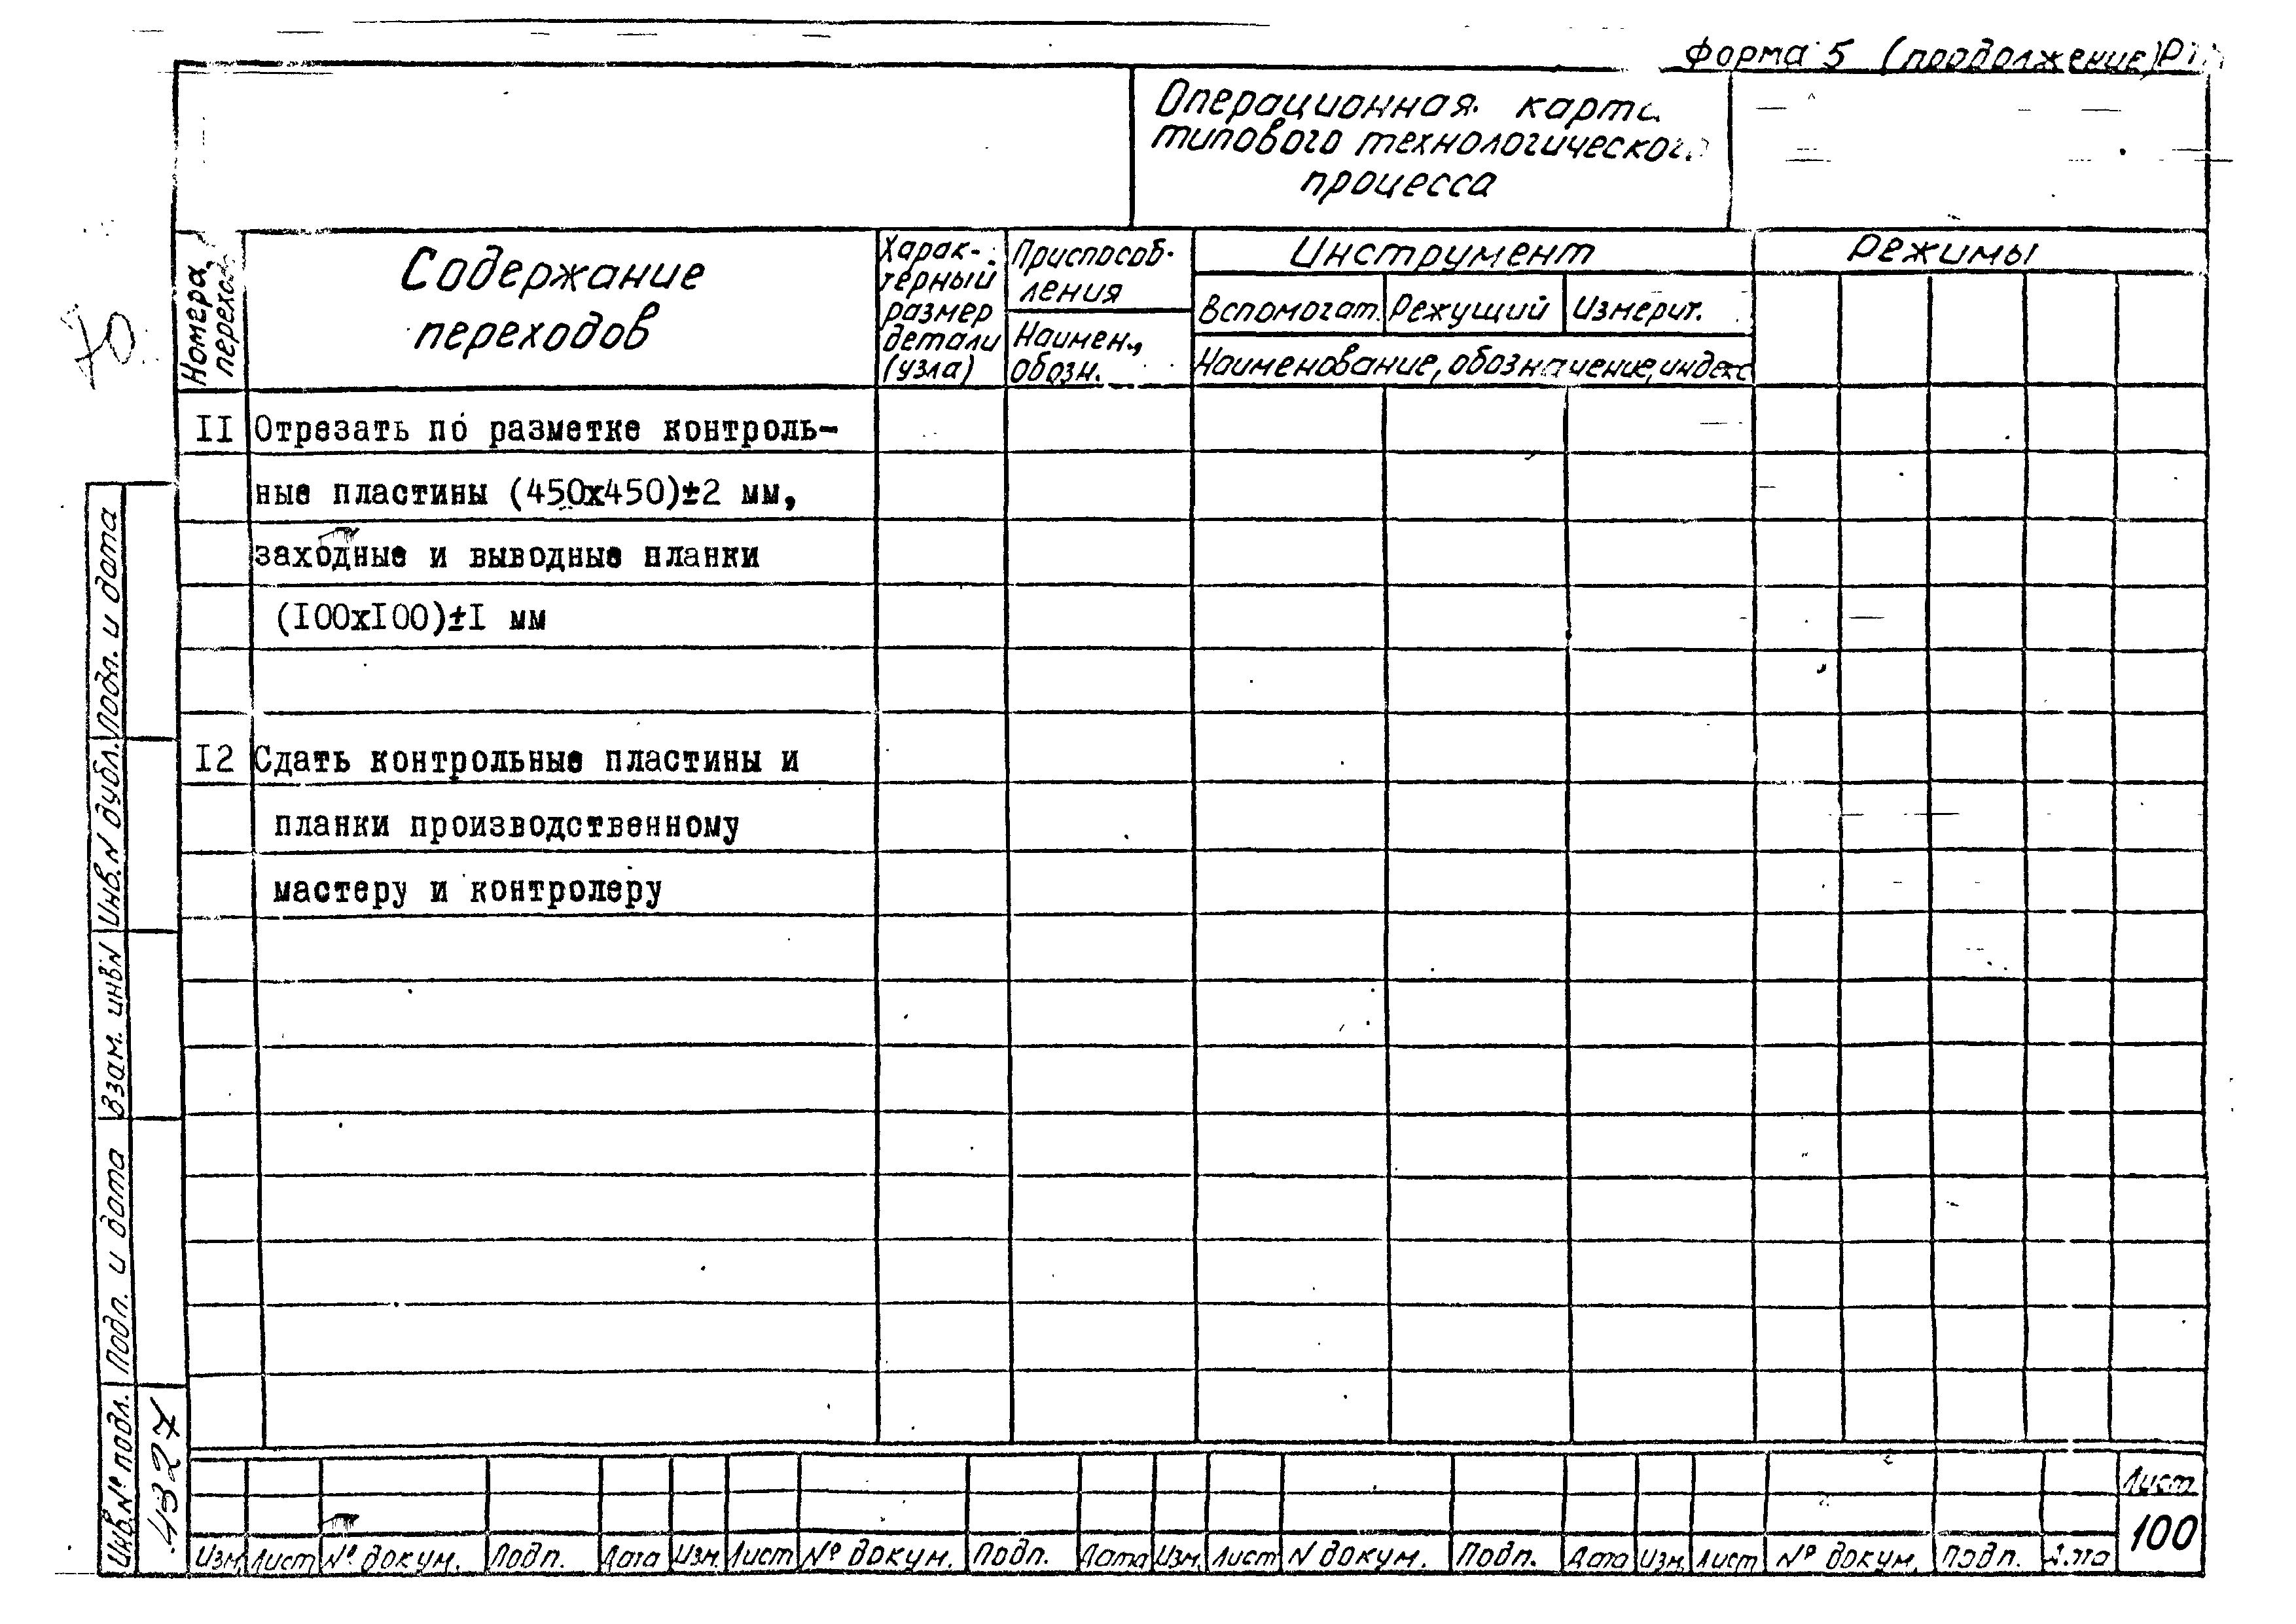 Форма 5 (продолжение)
Операционная карта
типового технологического
процесса
Номера
переход.
Содержание
переходов
Харак-
терный
размер
детали
(узла)
Приспособ-
ления
Наимен.,
обозн.
Инструмент
Вспомогат. Режущий Измерит.
Наименование, обозначение, индекс
Режимы
II Отрезать по разметке контроль-
ные пластины (450х450)±2 мм,
заходные и выводные планки
(I00хI00)±I мм
I2 Сдать контрольные пластины и
планки производственному
мастеру и контролеру
Подп. и дата
Инв.N дубл.
Взам. инв N
Подп. и дата
Инв.№ подл.
4327
Изм. Лист № докум. Подп. Дата Изм. Лист № докум. Подп. Дата Изм. Лист N докум. Подп. Дата Изм. Лист № докум. Подп. Дата
Лист
100